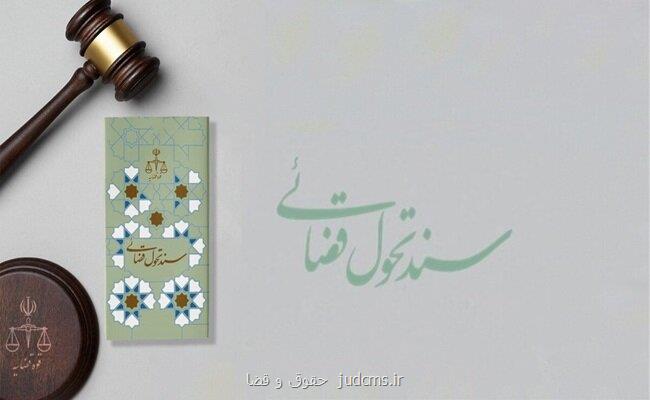 قوه قضاییه
سند تحول قضائی
سند تحول قضائی
قوه قضاییه
حقوق و قضا judcms.ir